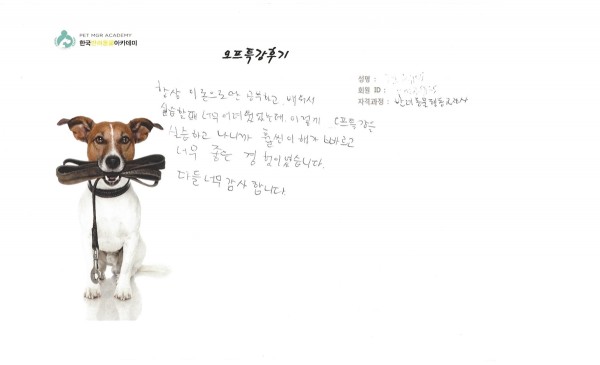 PET MGR ACADEMY
한국반려동물아카데미
오프특강후기
성명 :
회원 ID :
자격과정 : 반려동물행동교정사
항상 이론으로만 공부하고, 배워서
실습할때 너무 어려웠었는데, 이렇게 오프특강은
실습하고 나니까 훨씬 이해가 빠르고
너무 좋은 경험이었습니다.
다들 너무 감사합니다.